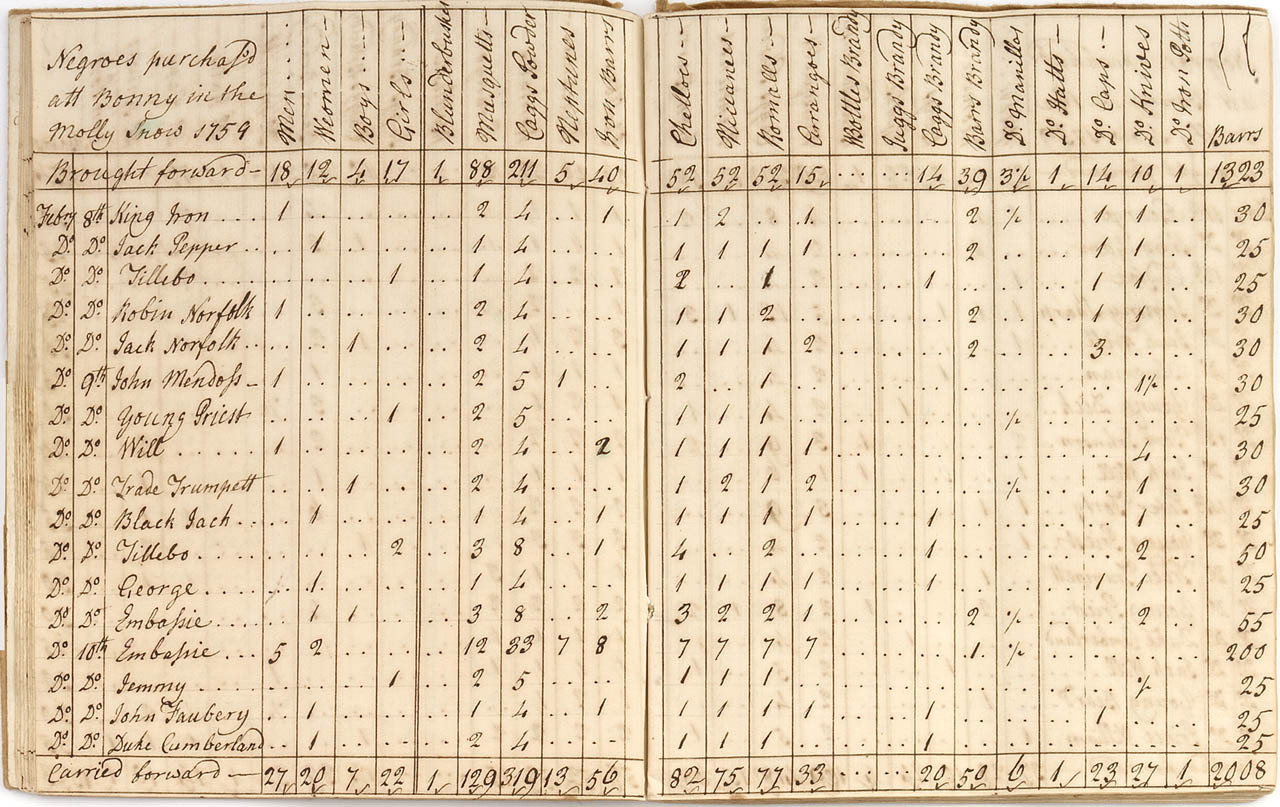 Negroes purchasd
att Bonny in the
Molly Snow 1759
Men Women Boys Girls Blunderbusses Musquetts Caggs Powder Nephunes Iron Barrs Chelloes Niccanees Romalls Corrangoes Bottles Brandy Juggs Brandy Caggs Brandy Barrs Brandy Do Manilles Do Hatts Do Caps Do Knives Do Iron Potts Barrs
Brought forward 18 12 4 17 1 88 211 5 40 52 52 52 15 14 39 3½ 1 14 10 1 1323
Febry 8th King Iron 1 2 4 1 1 2 1 2 ½ 1 1 30
Do Do Jack Pepper 1 1 4 1 1 1 1 2 1 1 25
Do Do Tillebo 1 1 4 2 1 1 1 1 25
Do Do Robin Norfolk 1 2 4 1 1 2 2 1 1 30
Do Do Jack Norfolk 1 2 4 1 1 1 2 2 3 30
Do 9th John Mendoss 1 2 5 1 2 1 1½ 30
Do Do Young Priest 1 2 5 1 1 1 ½ 25
Do Do Will 1 2 4 2 1 1 1 1 4 30
Do Do Trade Trumpett 1 2 4 1 2 1 2 ½ 1 30
Do Do Black Jack 1 1 4 1 1 1 1 1 1 1 25
Do Do Tillebo 2 3 8 1 4 2 1 2 50
Do Do George 1 1 4 1 1 1 1 1 1 1 25
Do Do Embassie 1 1 3 8 2 3 2 2 1 2 ½ 2 55
Do 10th Embassie 5 2 12 33 7 8 7 7 7 7 1 ½ 200
Do Do Jemmy 1 2 5 1 1 1 ½ 25
Do Do John Faubery 1 1 4 1 1 1 1 1 1 1 25
Do Do Duke Cumberland 1 2 4 1 1 1 1 25
Carried forward 27 20 7 22 1 129 319 13 56 82 75 77 33 20 50 6 1 23 27 1 2008